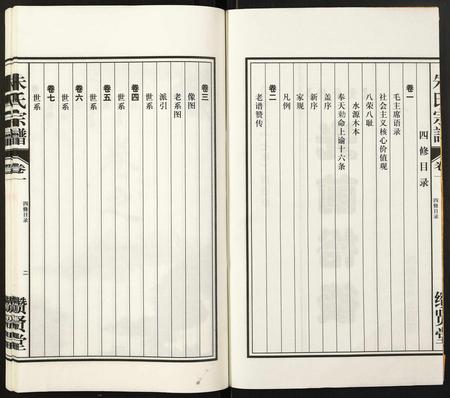 朱氏宗譜
卷一
四修目录
缵贤堂
四修目录
卷一
毛主席语录
社会主义核心价值观
八荣八耻
水源木本
奉天勅命上谕十六条
盖序
新序
家规
凡例
卷二
老谱赞传
卷三
像图
老系图
派引
卷四
世系
卷五
世系
卷六
世系
卷七
世系
朱氏宗譜
卷一
四修目录
二
缵贤堂